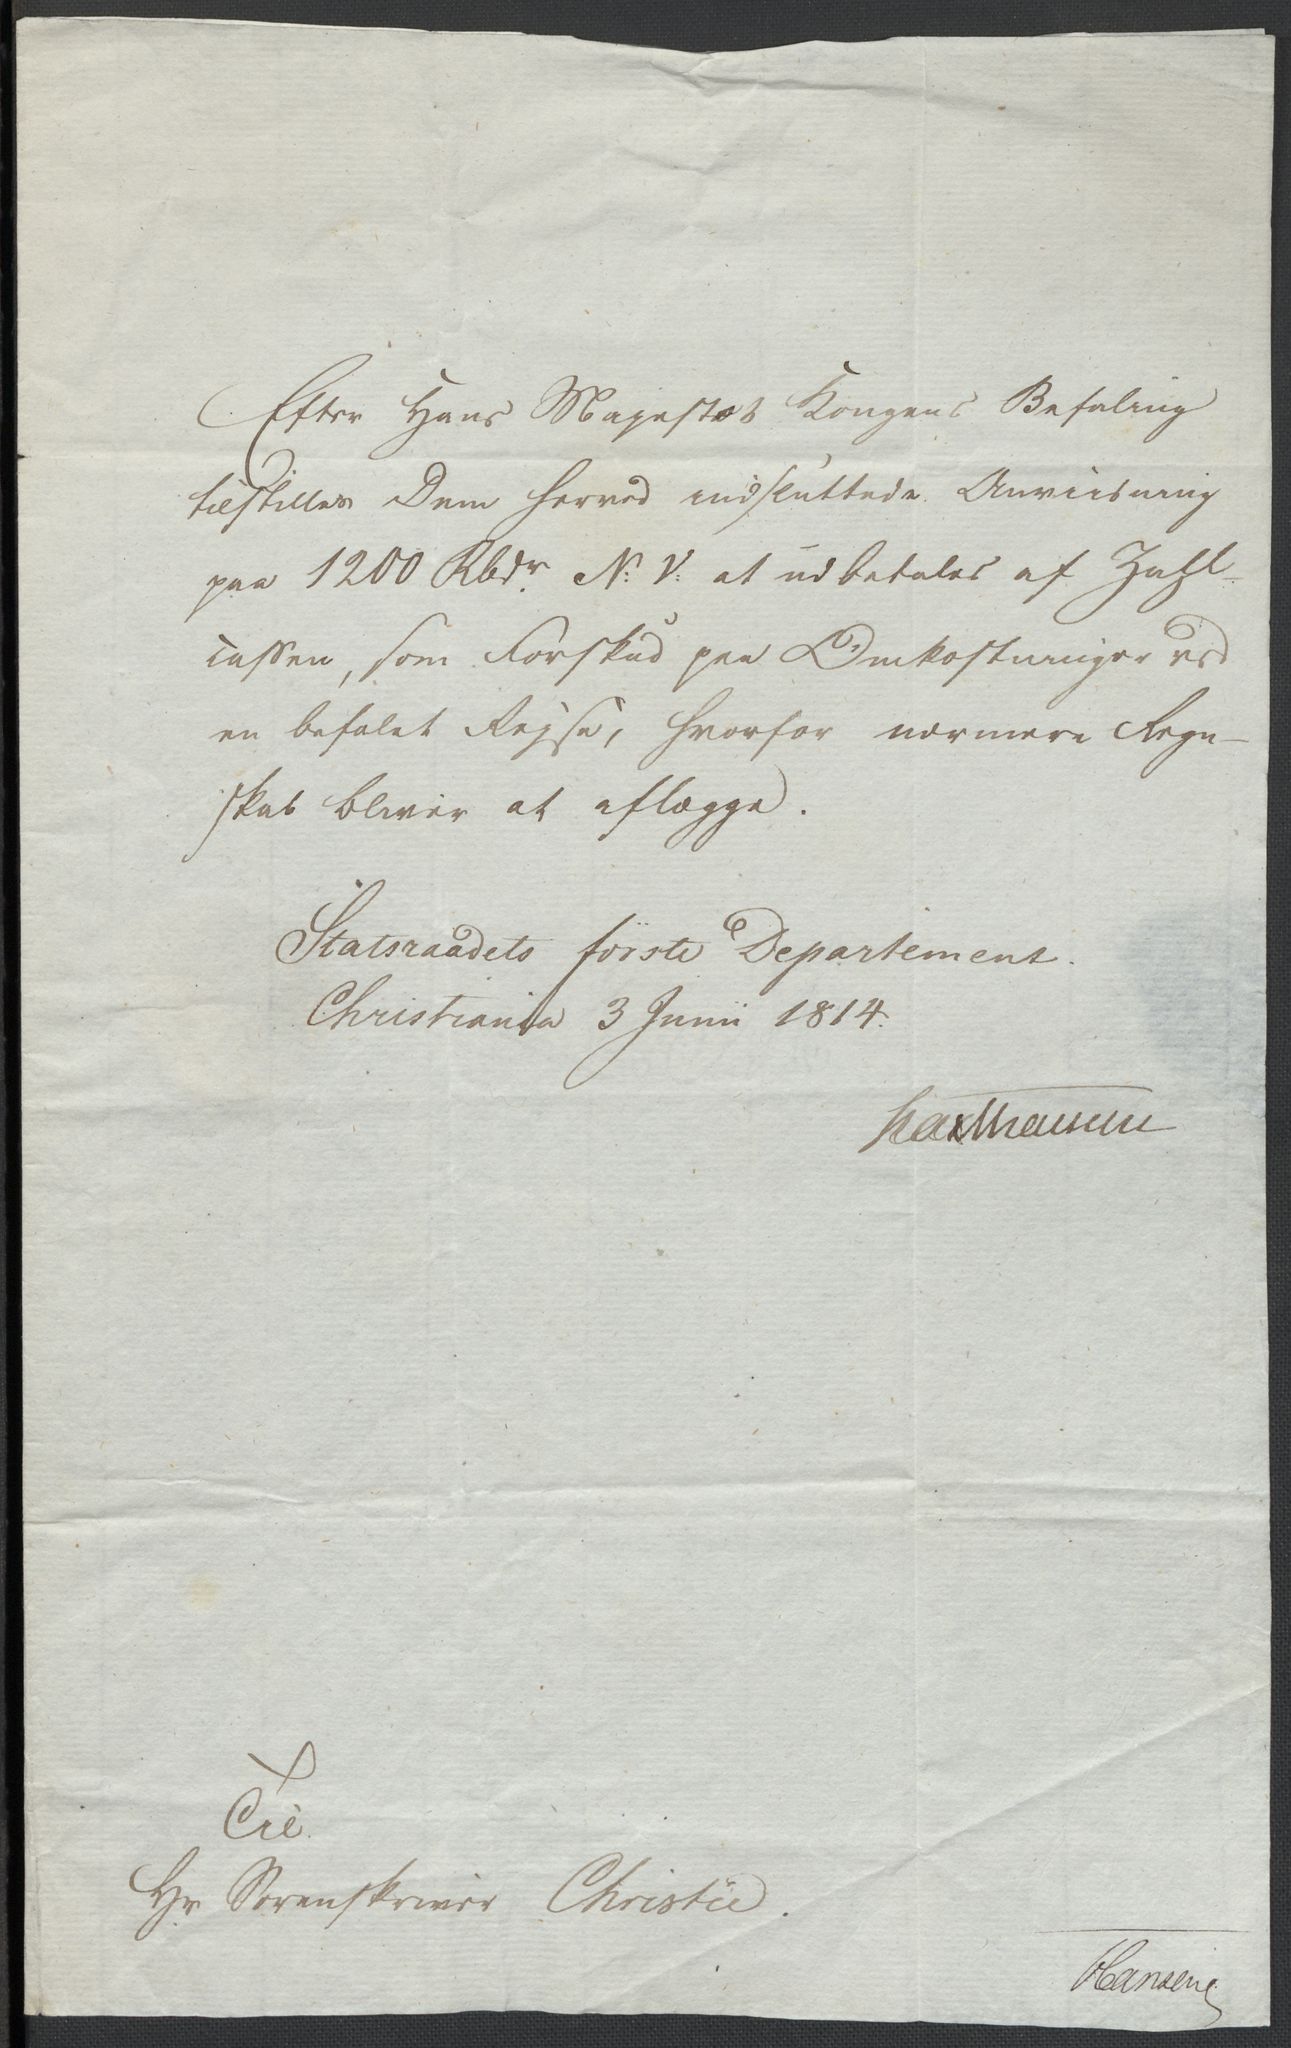 Efter Hans Majestæt Kongens Befaling
tilstilles Dem herved indsluttede Anviisning
paa 1200 Rbdr. N: V: at udbetales af Zahl-
cassen, som Forskud paa Omkostninger ved
en befalet Rejse, hvorfor nærmere Regn-
skab bliver at aflægge.
Statsraadets förste Departement.
Christiania 3 Junii 1814.
Haxthausen
Til
Hr Sorenskriver Christie.
Hansen